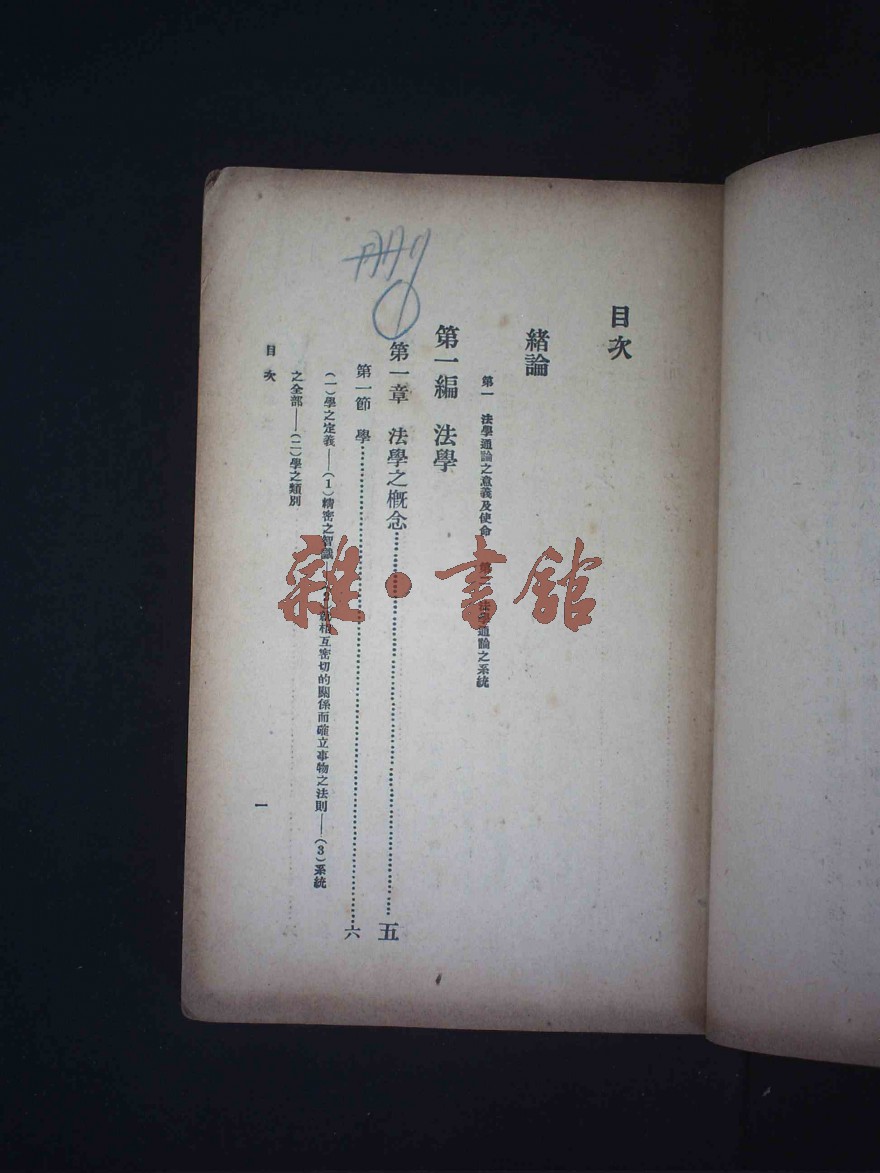 目次
緒論
第一 法學通論之意義及使命 第二 法學通論之系統
第一編 法學
第一章 法學之概念……五
第一節 學……六
(一)學之定義——(1)精密之智識——(2)就相互密切的關係而確立事物之法則——(3)系統
之全部——(二)學之類別
目次
一
雜·書館